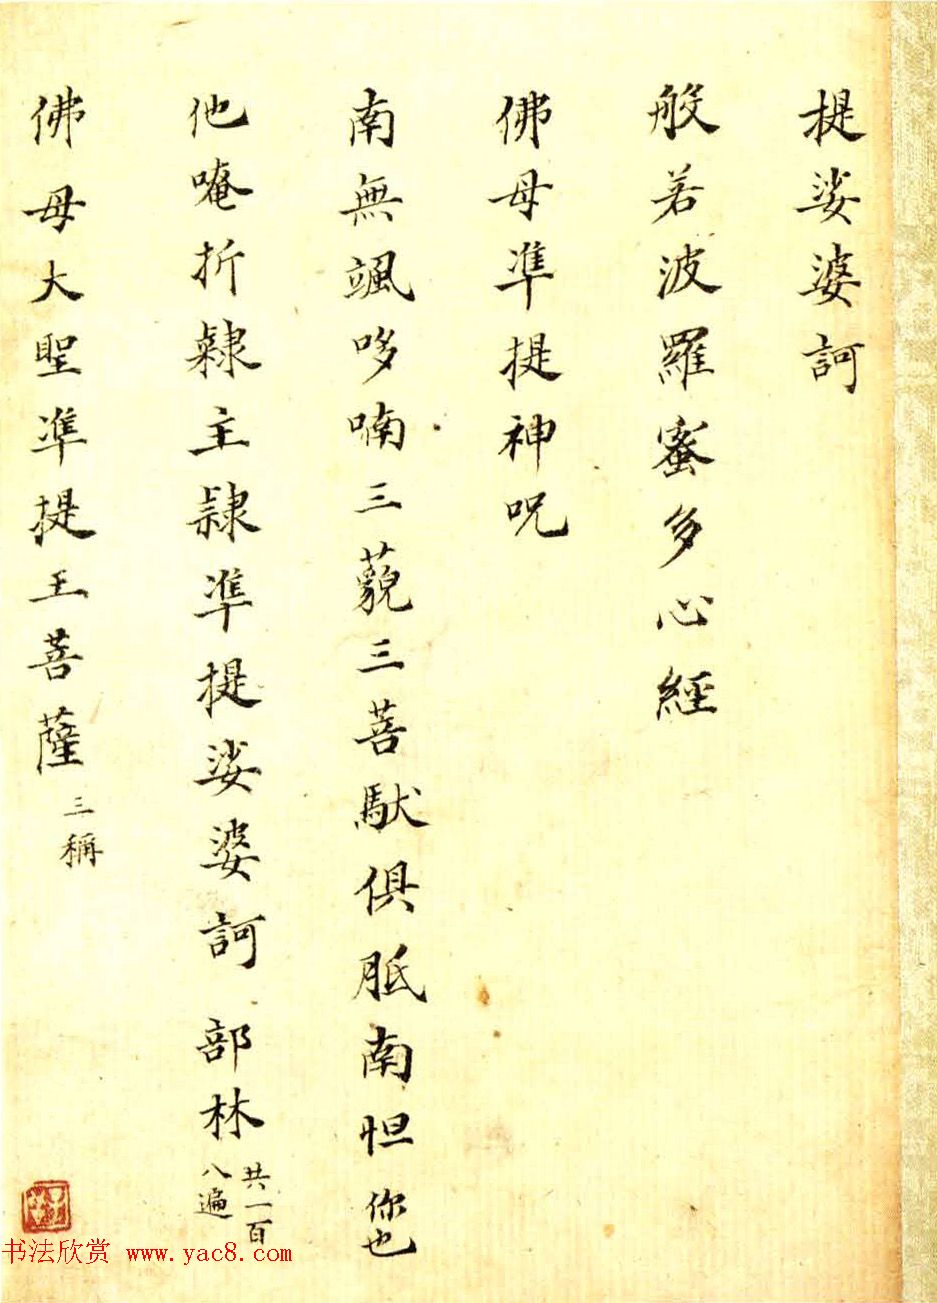 提娑婆訶
般若波羅蜜多心經
佛母凖提神呪
南無颯哆喃三藐三菩馱俱胝南怛你也
他唵折隸主隸凖提娑婆訶部林
共一百
八遍
佛母大聖凖提王菩薩三稱
书法欣赏 www.yac8.com